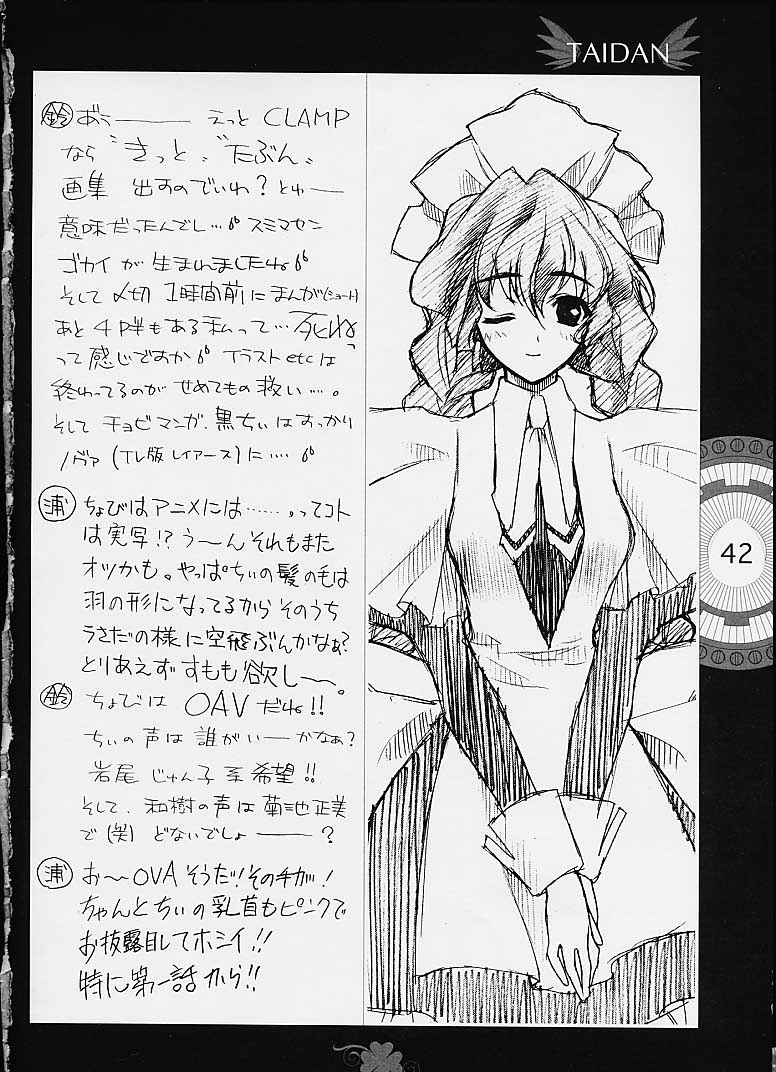 TAIDAN
鈴 あぅ―― えっと CLAMP
なら "きっと"、"たぶん"、
画集 出すのでいわ？とゅー
意味だったんでし… スミマセン
ゴカイが生まれましたね
そして 〆切 1時間前にまんが(ショート)
あと4P半もある私って…「死ね」
って感じですか イラストetcは
終わってるのが せめてもの救い…。
そして チョビマンガ、黒ちぃはすっかり
ノヴァ (TV版レイアース)に…
浦 ちょびはアニメには……。ってコト
は実写!? う～ん それもまた
オツかも。やっぱちぃの髪の毛は
羽の形になってるから そのうち
うさだの様に空飛ぶんかなぁ?
とりあえず すもも欲し～。
鈴 ちょびは OAV だね!!
ちぃの声は 誰がいーかなぁ?
岩尾 じゅん子 系 希望!!
そして、和樹の声は菊池正美
で(笑) どないでしょ――?
浦 お～OVAそうだ!その手が!
ちゃんとちぃの乳首もピンクで
お披露目してホシイ!!
特に第一話から!!
42